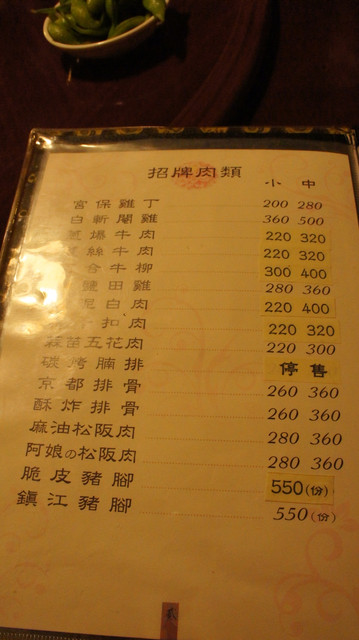 招牌肉類
小 中
宮保雞丁 200 280
白斬閹雞 360 500
爆牛肉 220 320
絲牛肉 220 320
合牛柳 300 400
田雞 280 360
泥白肉 220 400
扣肉 220 320
蒜苗五花肉 220 300
碳烤腩排 停售
京都排骨 260 360
酥炸排骨 260 360
麻油松阪肉 280 360
阿娘の松阪肉 280 360
脆皮豬腳 550(份)
鎮江豬腳 550(份)
貳